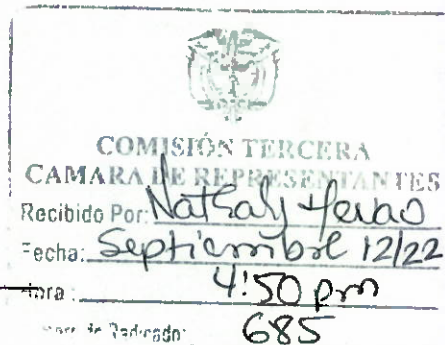 COMISIÓN TERCERA
CAMARA DE REPRESENTANTES
Recibido Por: Nathaly
Fecha: Septiembre 12/22
Hora: 4:50 pm
de Radicado: 685